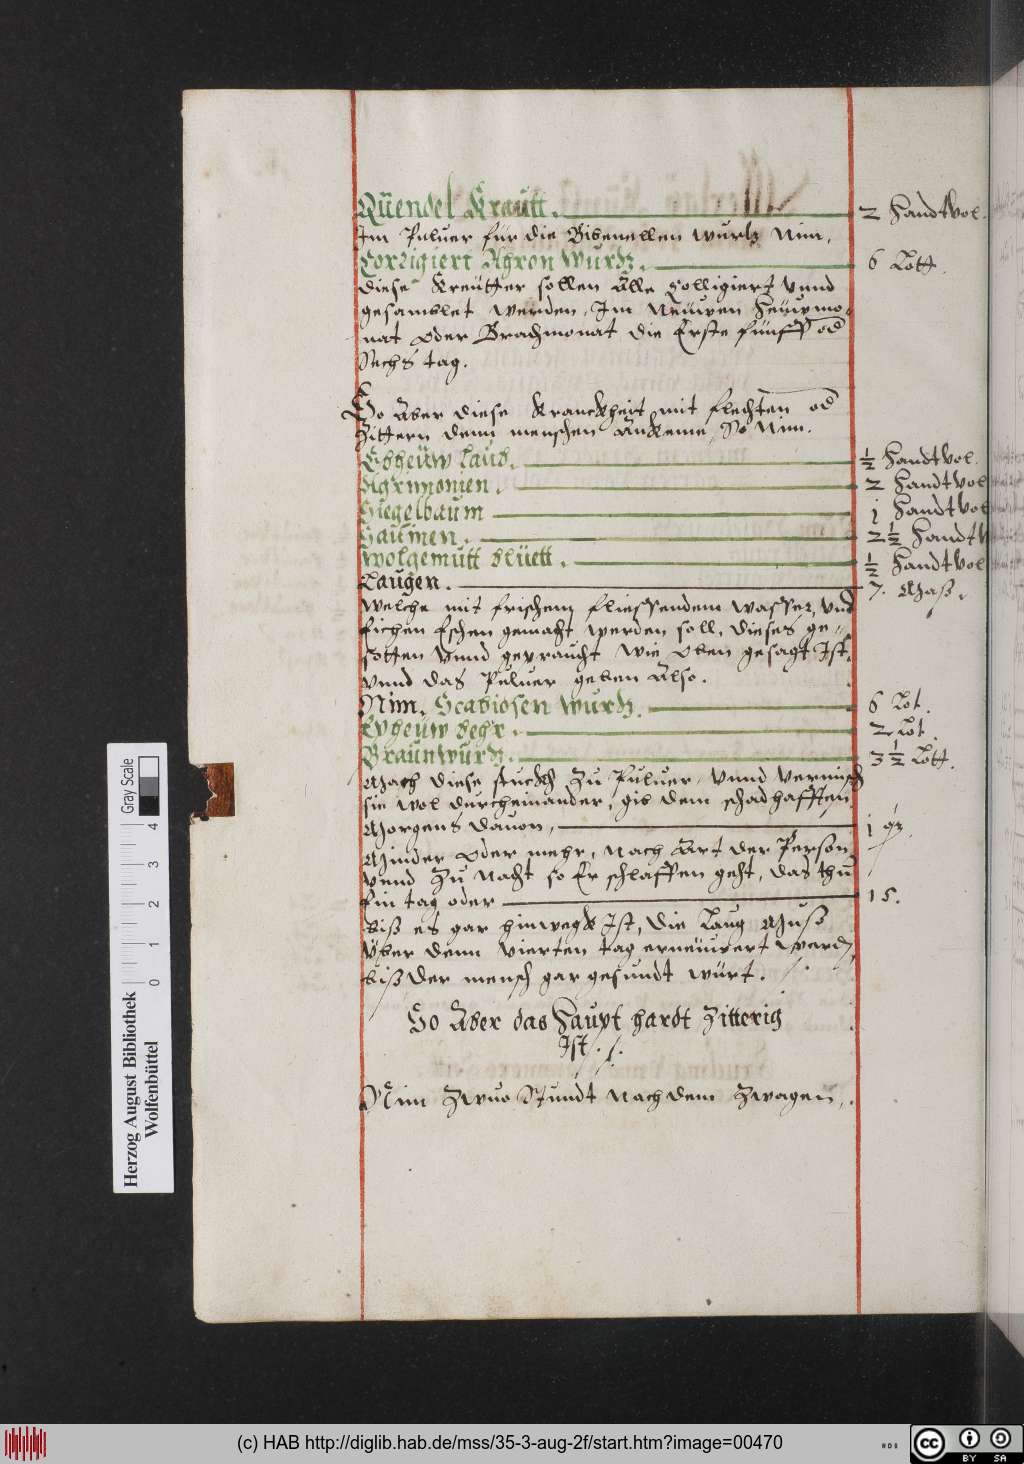 Quendel Krautt. 2 Handtvol.
Im Puluer für die Bibenellen wurtz Nim,
Corrigiert Aghron Wurtz. 6 Lott.
Diese Kreütter sollen Alle Colligiert vnnd
gesamblet werden, Im Neüwen Heüwmo-
nat oder Brachmonat die Erste fünff od
Sechs tag.
So Aber diese Kranckheit mit flechten od
Zittern denn menschen Ankeme, So Nim.
Ebheüw laub. ½ Handtvol.
Agrimonien. 2 Handtvol
Siegelbaum j Handtvol
2½ Handtv
Wolgemutt blüett. ½ Handtvol
Laugen. 7. Mass.
Welche mit frischem fliessendem wasser, vnd
Eichen Eschen gemacht werden soll, dieses ge-
sotten vnnd gepraucht wie oben gesagt Ist.
vnnd das Puluer geben Also.
Nim, Scabiosen Wurtz. 6 Lot.
Epheüw behr. 2 Lot.
Braunwurtz. 3½ Lott.
Mach diese stuckh Zu Puluer, vnnd vermisch
sie wol durcheinander, gib dem schadhafften
Morgens dauon, j
Minder oder mehr, nach Art der Person,
vnnd Zu Nacht so Er schlaffen geht, das thu
Ein tag oder 15.
biß es gar hinwegk Ist, die Laug Muß
Vber denn vierten tag erneüwert werd,
biß der mensch gar gesundt würt.
So Aber das Haupt hardt Zitterig
Ist.
Nim Zwuo Stundt nach dem Zwagen,
Herzog August Bibliothek
Wolfenbüttel
Gray Scale
0 1 2 3 4
(c) HAB http://diglib.hab.de/mss/35-3-aug-2f/start.htm?image=00470
cc BY SA